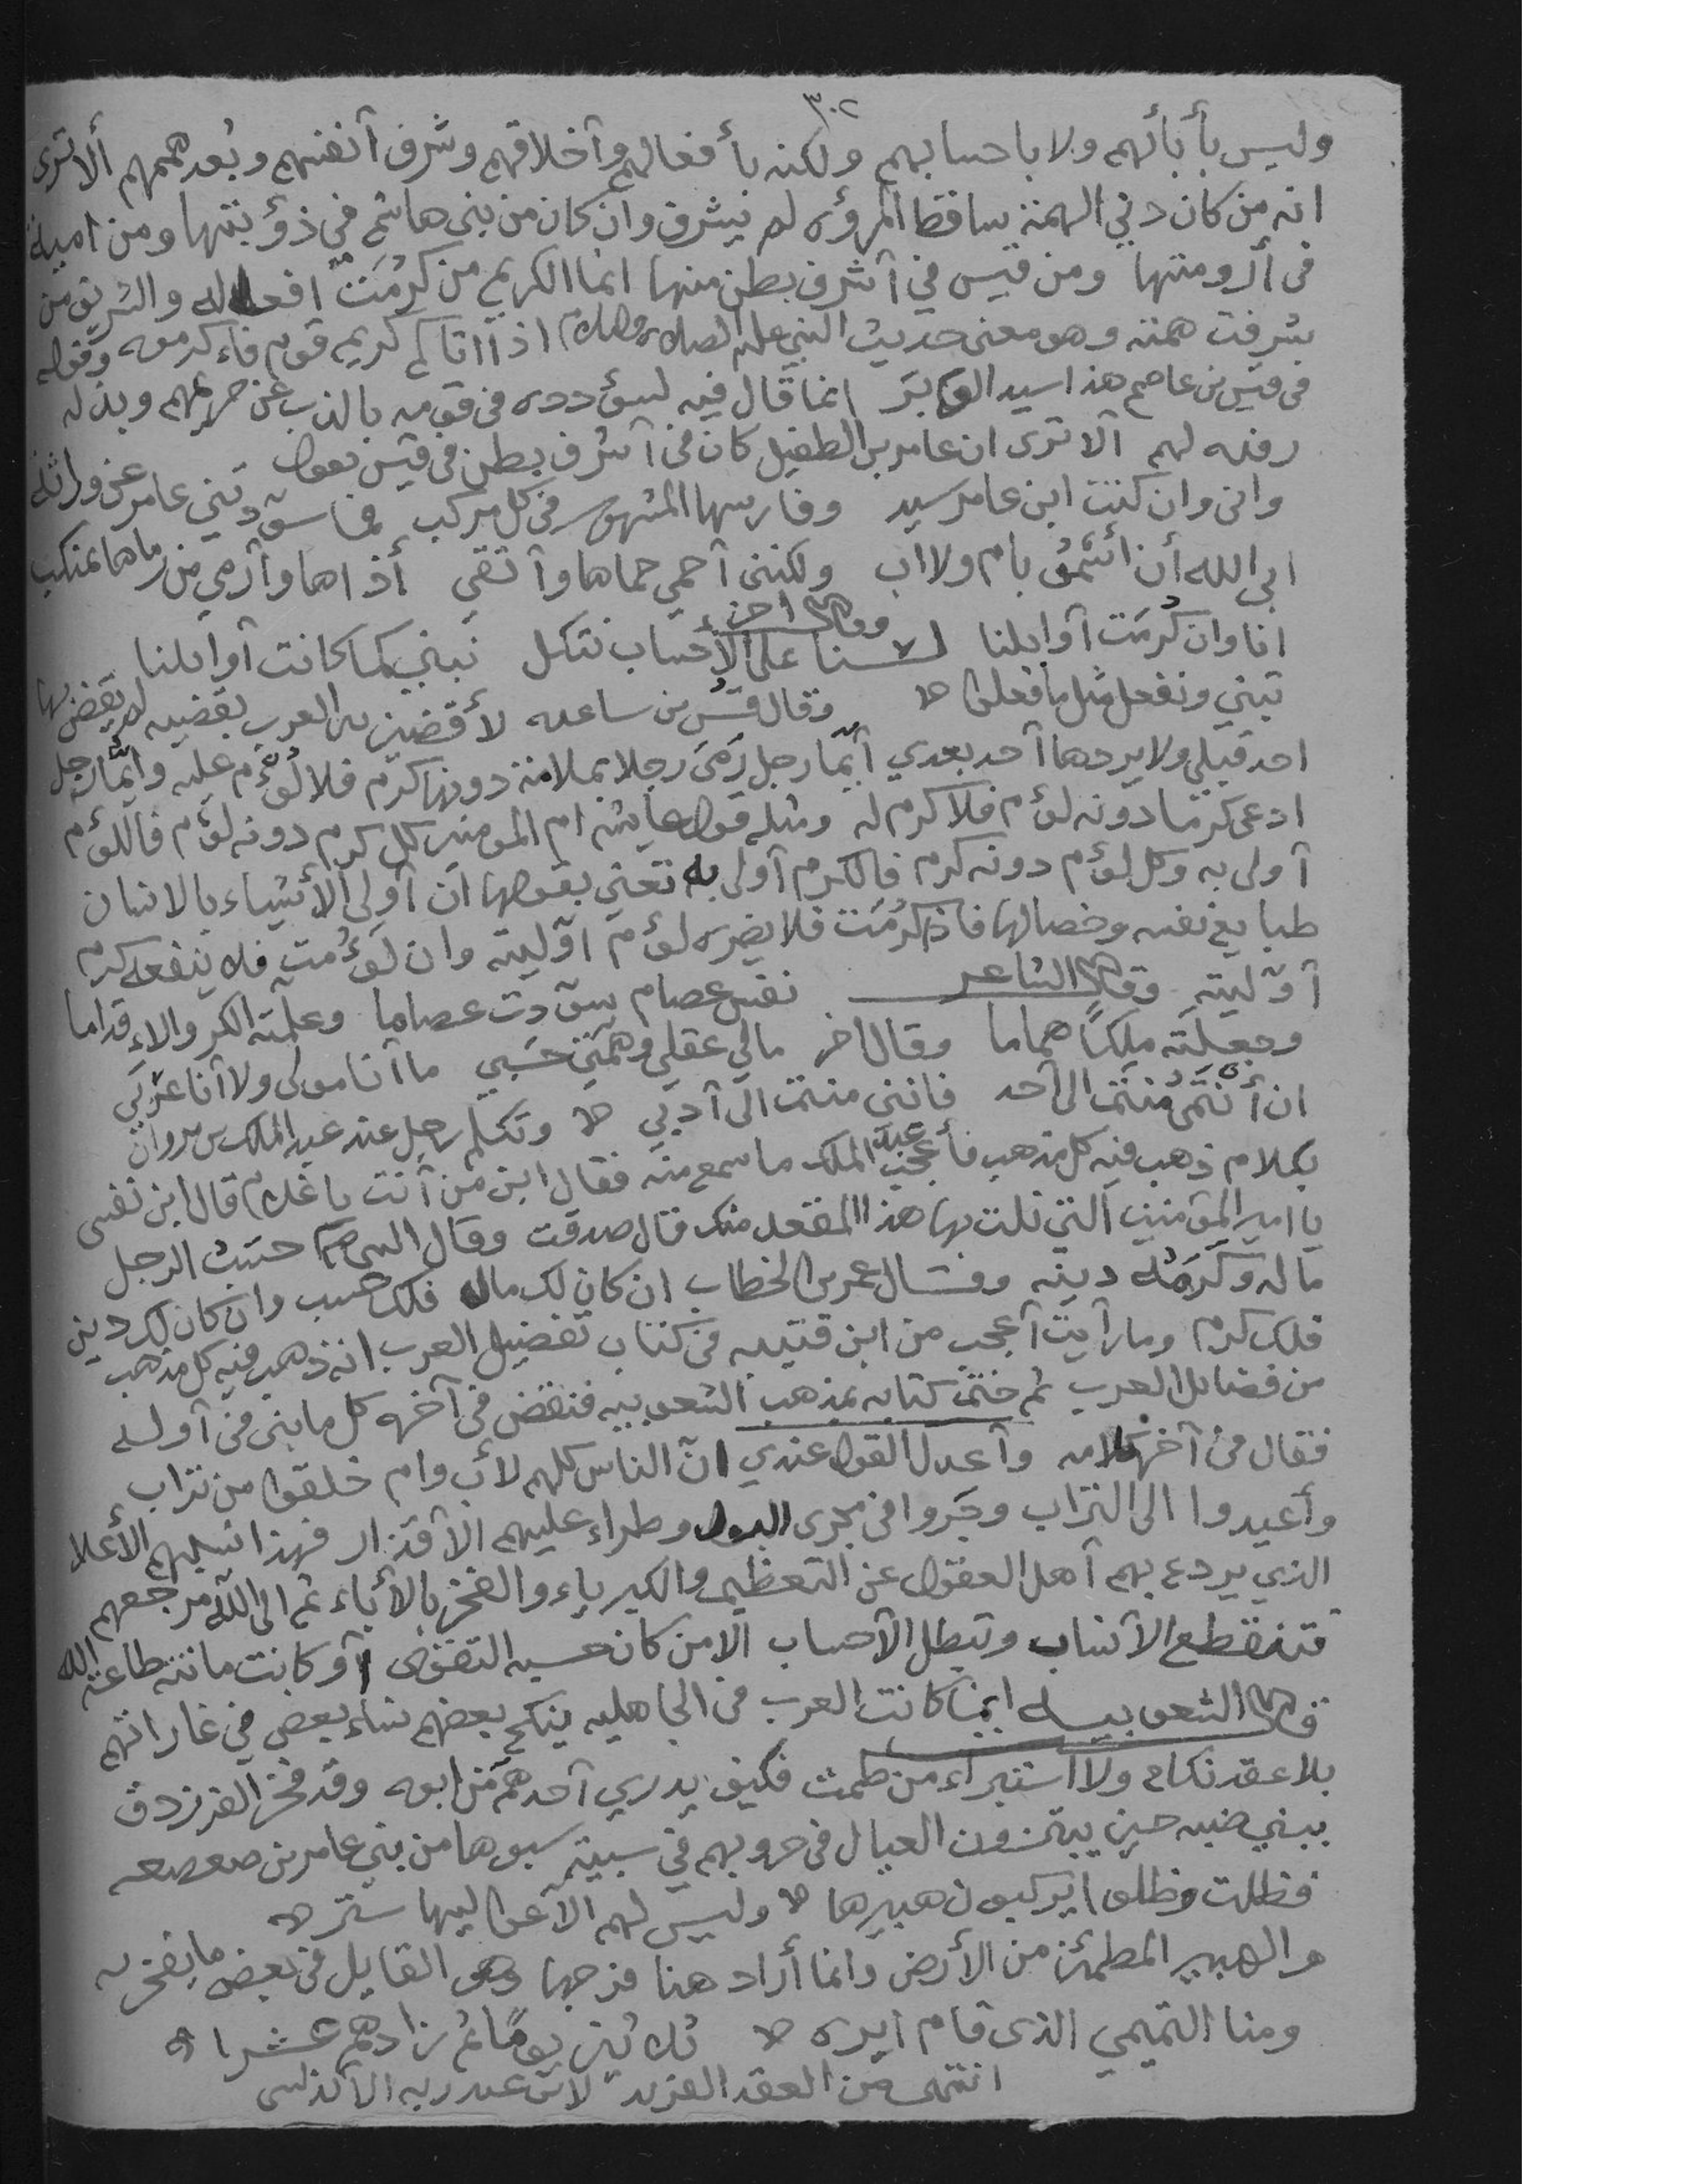 ٣٠٢
وليس بأبائهم ولا باحسابهم ولكنه بأفعالهم وآخلاقهم وشرف آنفسهم وبُعد هممهم ألا ترى
انه من كان دني الهمة ساقط المرؤه لم يشرف وان كان من بني هاشم في ذؤبتها ومن امية
فى أرومتها ومن قيس في آشرف بطن منها انما الكريم من كرُمَتْ افعاله والشريف من
شرفت همته وهو معنى حديث النبي عليه الصلاه والسلام اذا اتاكم كريم قوم فاءكرموه وقوله
فى قيس بن عاصم هذا سيد الوبر انما قال فيه لسؤدده فى قومه بالذب عن حريمهم وبذله
رفده لهم آلا ترى ان عامر بن الطفيل كان فى آشرف بطن فى قيس يقول
وانى وان كنت ابن عامر سيد وفارسها المشهور فى كل مركب فما سوّدتني عامر عن وراثة
ابى الله أن اسْمُوْ بام ولا اب ولكنني آحمي حماها وآتقي أذاها وآرمي من رماها بمنكب
وقال اخر
انا وان كرُمَت آوايلنا لسنا على الأحساب نتكل نبني كما كانت آوايلنا
تبني ونفعل مثل ما فعلوا وقال قسُّ بن ساعده لأقضين بين العرب بقضيه لم يقض بها
احد قبلي ولا يردها آحد بعدي آيّما رجل رَمىَ رجلا بملامة دونها كرم فلا لُؤْم عليه وايّما رجل
ادعى كرما دونه لؤم فلا كرم له ومثله قول عايشه ام المومنين كل كرم دونه لؤم فاللؤم
آولى به وكل لؤم دونه كرم فالكرم آولى به تعني بقولها ان آولى الأشياء بالانسان
طبايع نفسه وخصالها فاذا كرُمَت فلا يضره لؤم اوّليته وان لؤُمت فلا ينفعه كرم
آوّليته وقال الشاعر نفس عصام سوّدت عصاما وعلمته الكر والاءقداما
وجعلته ملكاً هماما وقال اخر مالي عقلي وهمّتي حسَبي ما آنا مولى ولا آنا عرَبي
ان أنتمى مُنتمٍ الى آحد فانني منتمٍ الى آدبي وتكلم رجل عند عبد الملك بن مروان
بكلام ذهب فيه كل مذهب فأعجب عبد الملك ما سمع منه فقال ابن من آنت يا غلام قال ابن نفسى
يا امير المؤمنين التي نلت بها هذا المقعد منك قال صدقت وقال النبي حسَبُ الرجل
ماله وكرَمُه دينه وقال عمر بن الخطاب ان كان لك مال فلك حسب وان كان لك دين
فلك كرم وما رآيت آعجب من ابن قتيبه فى كتاب تفضيل العرب انه ذهب فيه كل مذهب
من فضايل العرب ثم ختم كتابه بمذهب الشعوبيه فنقض فى آخره كل ما بنى فى آوله
فقال فى آخر كلامه وآعدل القول عندي انّ الناس كلهم لأب وام خلقوا من تراب
وأعيدوا الى التراب وجَروا فى مجرى البول وطراء عليهم الآقذار فهذا نسبهم الأعلا
الذي يردع بهم آهل العقول عن التعظيم والكبرياء والفخر بالأباء ثم الى الله مرجعهم
فتنقطع الآنساب وتبطل الآحساب الا من كان حسبه التقوى آو كانت ماتته طاعة الله
قال الشعوبيه انما كانت العرب فى الجاهليه ينكح بعضهم نساء بعض في غاراتهم
بلا عقد نكاح ولا استبراء من طمث فكيف يدري آحدهم مَن ابوه وقد فخر الفرزدق
ببني ضبه حين يبتزون العيال فى حروبهم في سبيّة سبوها من بني عامر بن صعصعه
فظلت وظلوا يركبون هبيرها وليس لهم الا عواليها ستر
والهبير المطمئن من الأرض وانما أراد هنا فرجها وهو القايل فى بعض ما يفخر به
ومنا التميمي الذى قام ايره ثلاثين يومًا ثم زادهم عشرا
انتهى من العقد الفريد لابن عبد ربه الآندلسى